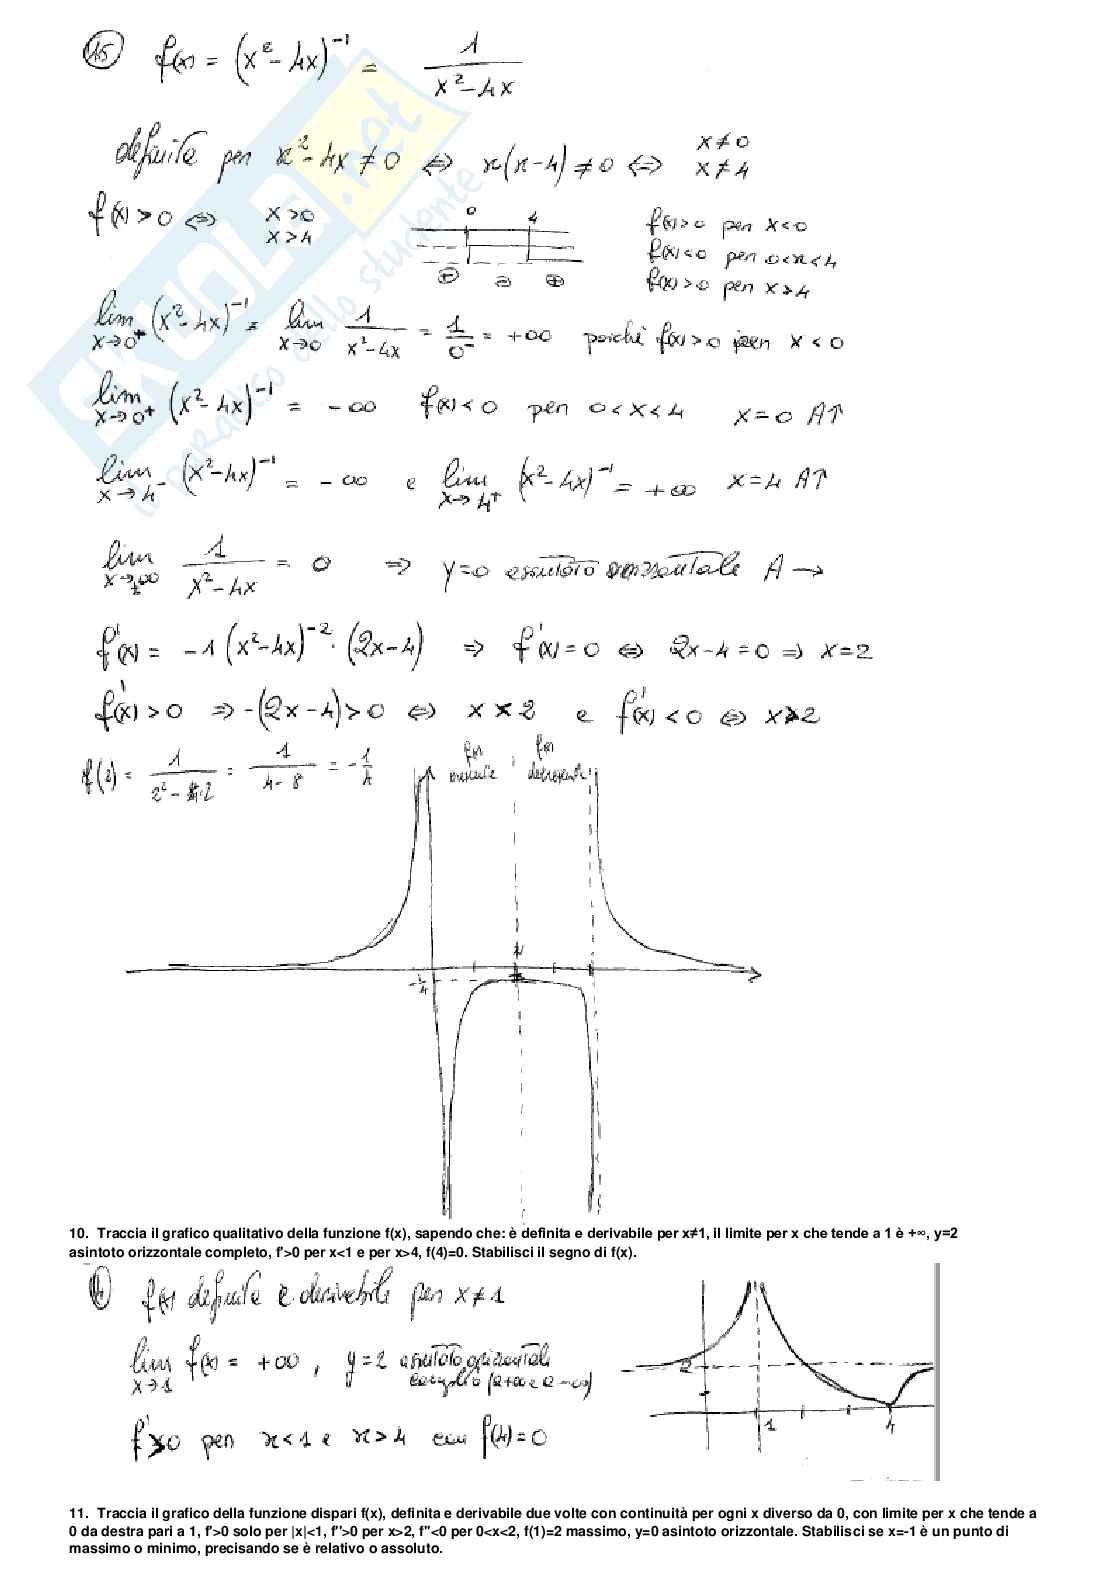 15 f(x) = (x²-4x)⁻¹ = 1/(x²-4x)
definita per x²-4x≠0 ⇔ x(x-4)≠0 ⇔ x≠0 x≠4
f(x)>0 ⇔ x>0 x>4
0 4
+ - +
f(x)>0 per x<0
f(x)<0 per 0<x<4
f(x)>0 per x>4
lim x→0⁺ (x²-4x)⁻¹ = lim x→0 1/(x²-4x) = 1/0⁻ = +∞ poiché f(x)>0 per x<0
lim x→0⁺ (x²-4x)⁻¹ = -∞ f(x)<0 per 0<x<4 x=0 A↑
lim x→4⁻ (x²-4x)⁻¹ = -∞ e lim x→4⁺ (x²-4x)⁻¹ = +∞ x=4 A↑
lim x→±∞ 1/(x²-4x) = 0 ⇒ y=0 asintoto orizzontale A→
f'(x) = -1(x²-4x)⁻²·(2x-4) ⇒ f'(x)=0 ⇔ 2x-4=0 ⇒ x=2
f'(x)>0 ⇒ -(2x-4)>0 ⇔ x<2 e f'(x)<0 ⇔ x>2
f(2) = 1/(2²-4·2) = 1/(4-8) = -1/4
f(x) crescente
f(x) decrescente
2
-1/4
10. Traccia il grafico qualitativo della funzione f(x), sapendo che: è definita e derivabile per x≠1, il limite per x che tende a 1 è +∞, y=2
asintoto orizzontale completo, f'>0 per x<1 e per x>4, f(4)=0. Stabilisci il segno di f(x).
f(x) definita e derivabile per x≠1
lim x→1 f(x) = +∞, y=2 asintoto orizzontale
completo (a+∞ e a-∞)
f'>0 per x<1 e x>4 con f(4)=0
2
1 4
11. Traccia il grafico della funzione dispari f(x), definita e derivabile due volte con continuità per ogni x diverso da 0, con limite per x che tende a
0 da destra pari a 1, f'>0 solo per |x|<1, f''>0 per x>2, f''<0 per 0<x<2, f(1)=2 massimo, y=0 asintoto orizzontale. Stabilisci se x=-1 è un punto di
massimo o minimo, precisando se è relativo o assoluto.
SKUOLA.net
il paradiso dello studente